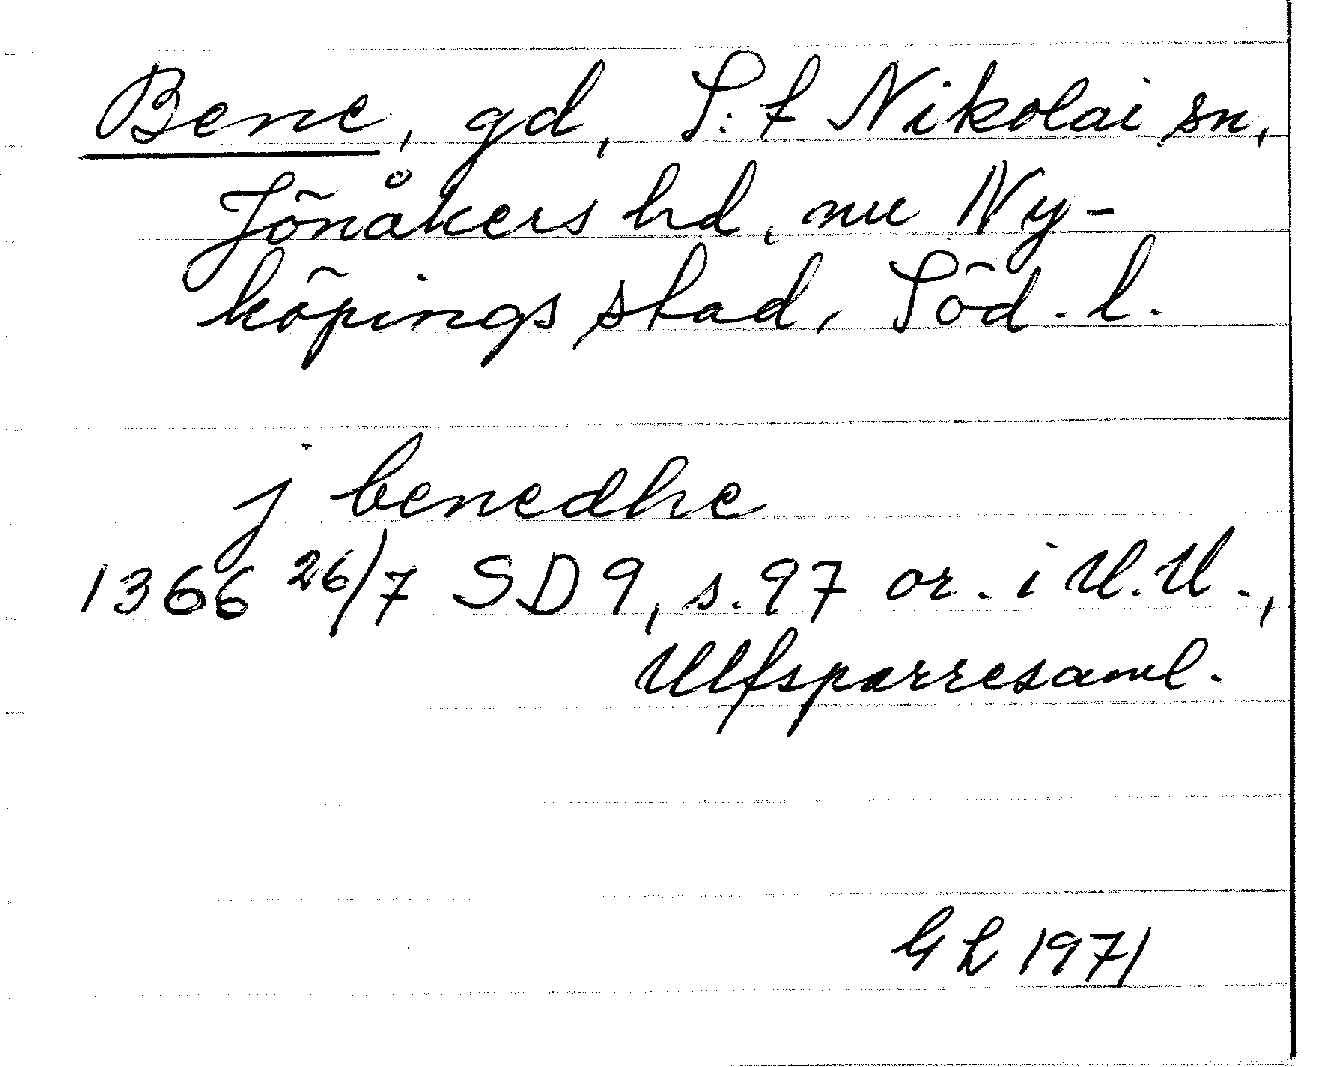 Bene, gd, S:t Nikolai sn,
Jönåkers hd, nu Ny-
köpings stad, Söd. l.
j benedhe
1366 26/7 SD 9, s. 97 or. i U.U.,
Ulfsparresaml.
GL 1971